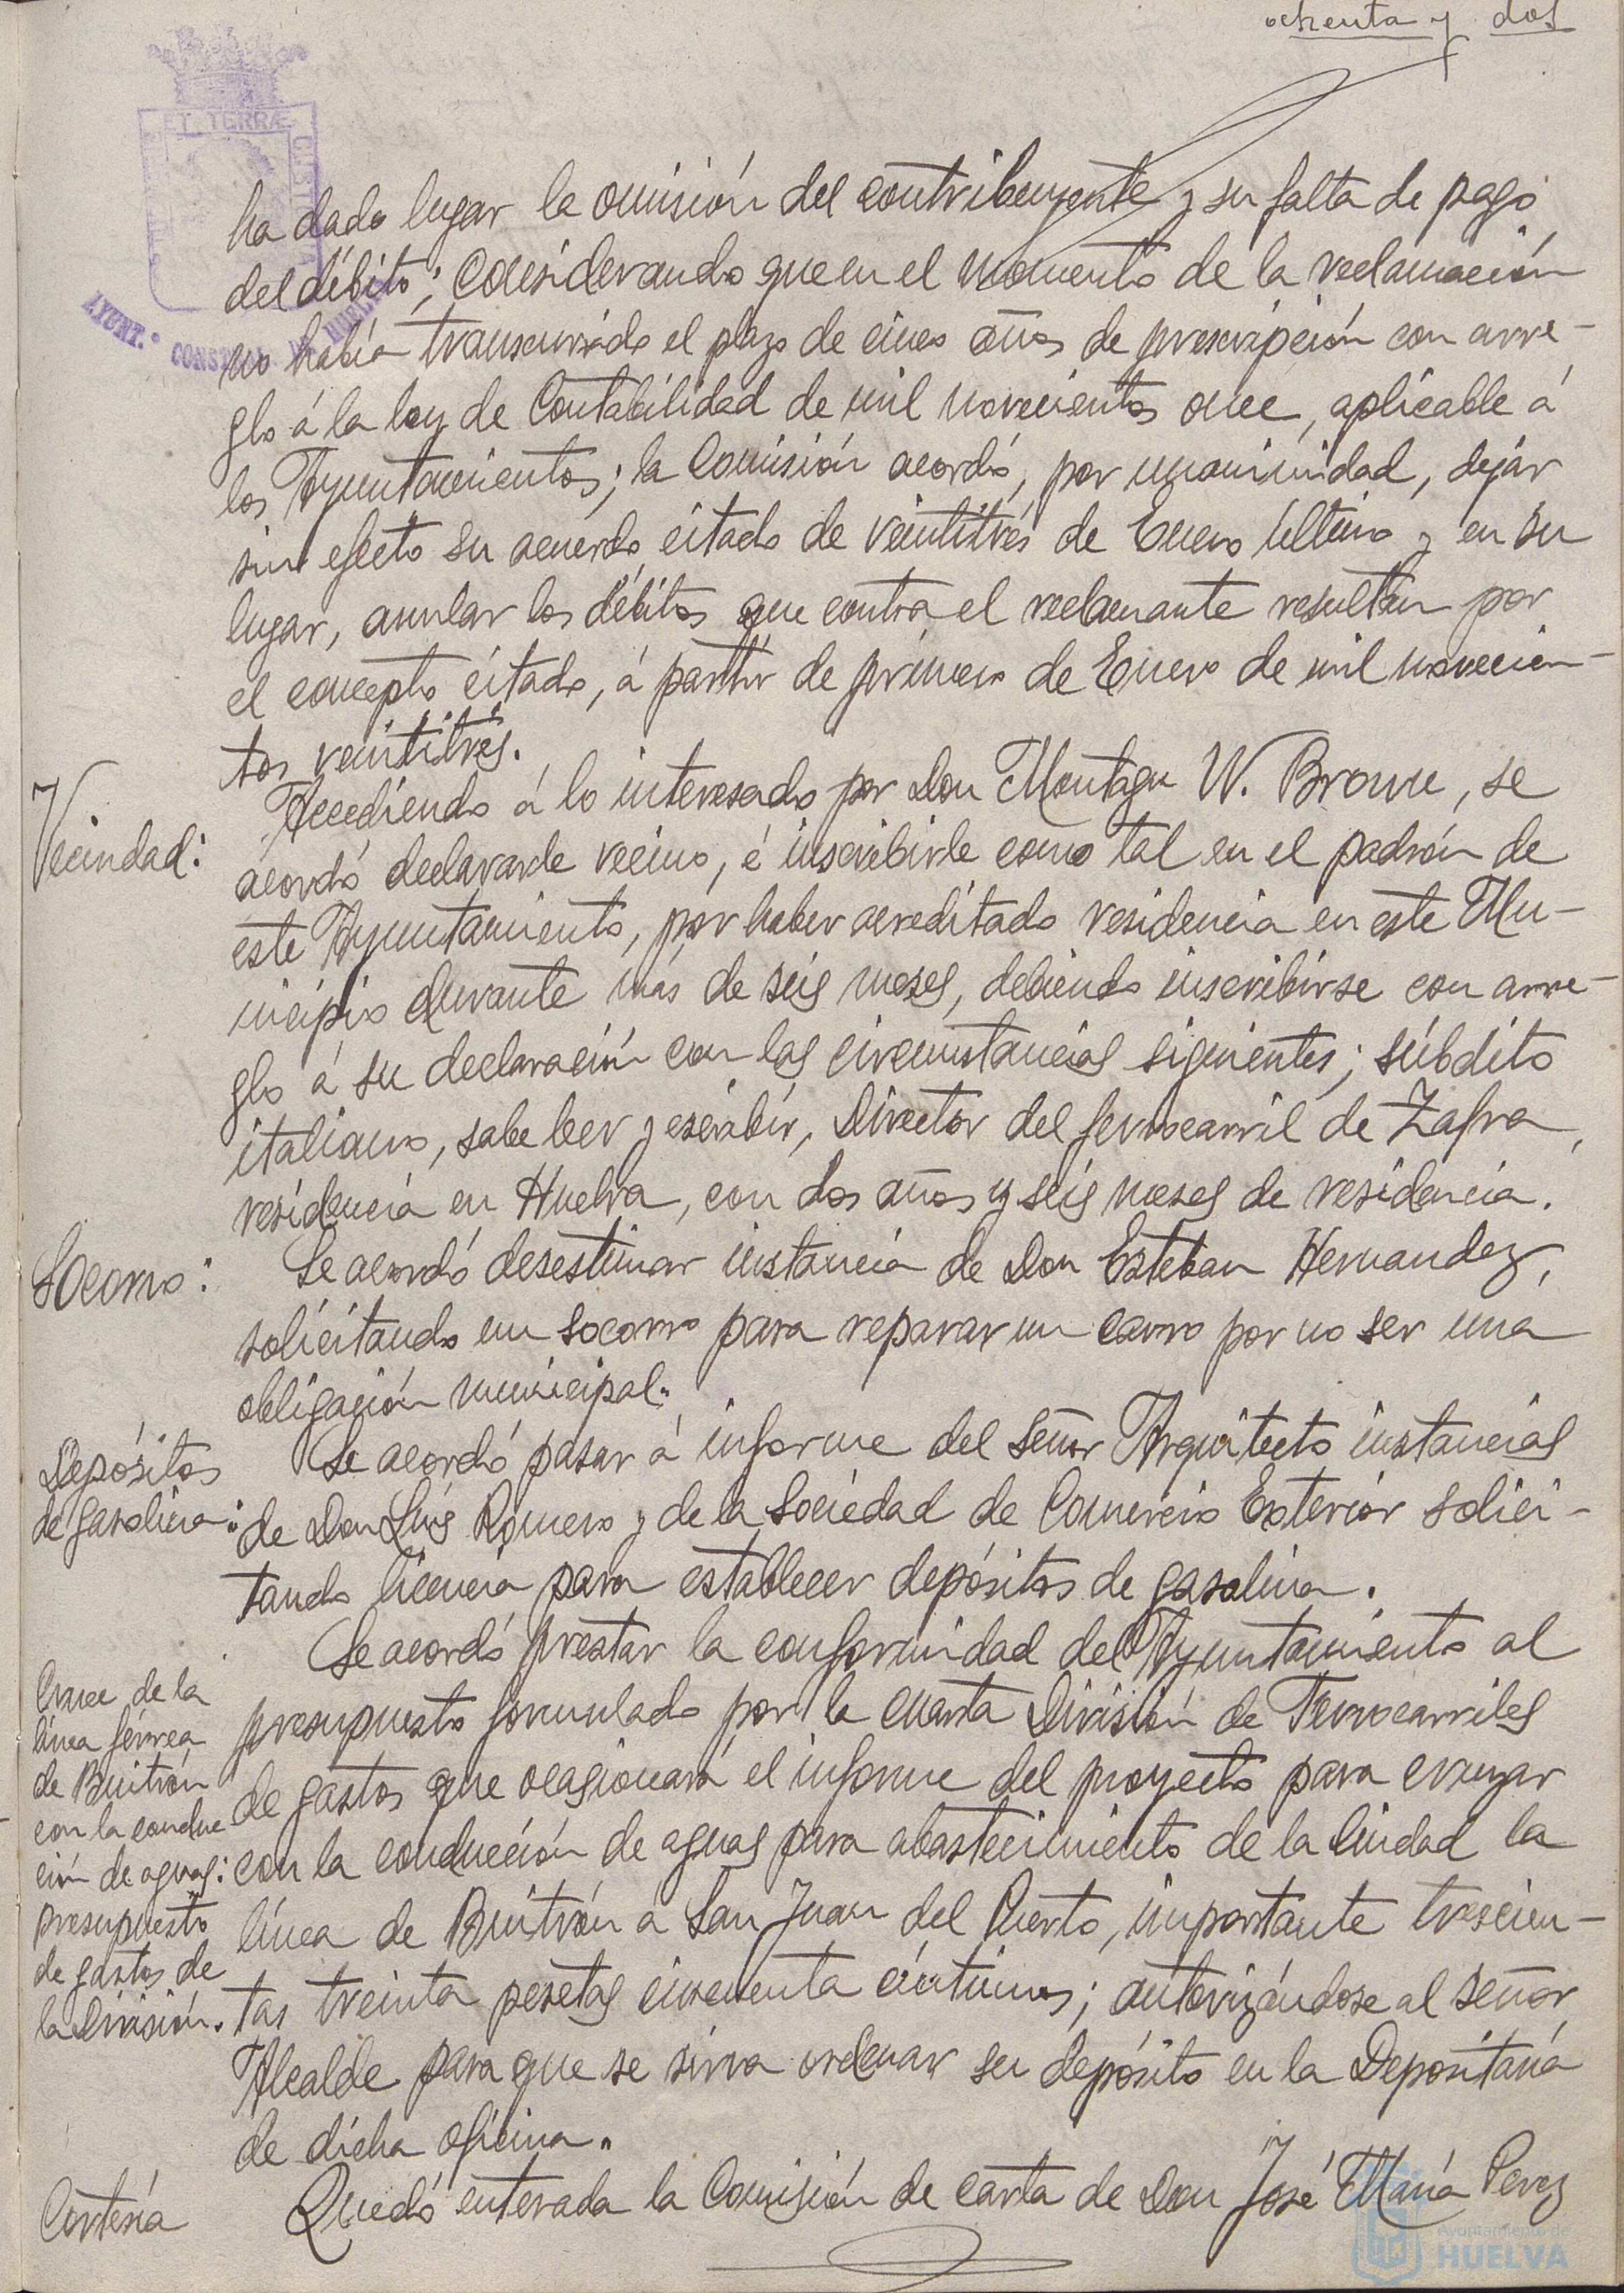 ochenta y dos
ET TERRÆ
AYUNT.º CONSTNAL DE HUELVA
ha dado lugar la omisión del contribuyente y su falta de pago
del débito; Considerando que en el momento de la reclamación
no había transcurrido el plazo de cinco años de prescripción con arre-
glo á la ley de Contabilidad de mil novecientos once, aplicable á
los Ayuntamientos; la Comisión acordó, por unanimidad, dejar
sin efecto su acuerdo citado de veintitrés de Enero último y en su
lugar, anular los débitos que contra el reclamante resultan por
el concepto citado, á partir de primero de Enero de mil novecien-
tos veintitrés.
Vecindad:
Accediendo á lo interesado por Don Montagu W. Brown, se
acordó declararle vecino, é inscribirle como tal en el padrón de
este Ayuntamiento, por haber acreditado residencia en este Mu-
nicipio durante más de seis meses, debiendo inscribirse con arre-
glo á su declaración con las circunstancias siguientes; súbdito
italiano, sabe leer y escribir, Director del ferrocarril de Zafra,
residencia en Huelva, con dos años y seis meses de residencia.
Socorro:
Se acordó desestimar instancia de Don Esteban Hernandez,
solicitando un socorro para reparar un carro por no ser una
obligación municipal.
Depósitos
de gasolina:
Se acordó pasar á informe del señor Arquitecto instancias
de Don Luis Romero y de la Sociedad de Comercio Exterior solici-
tando licencia para establecer depósitos de gasolina.
Cruce de la
línea férrea
de Buitrón
con la conduc
ción de aguas:
presupuesto
de gastos de
la División.
Se acordó prestar la conformidad del Ayuntamiento al
presupuesto formulado por la cuarta División de Ferrocarriles
de gastos que ocasionará el informe del proyecto para cruzar
con la conducción de aguas para abastecimiento de la Ciudad la
línea de Buitrón á San Juan del Puerto, importante trescien-
tas treinta pesetas cincuenta céntimos; autorizándose al señor
Alcalde para que se sirva ordenar su depósito en la Depositaría
de dicha oficina.
Cortesía
Quedó enterada la Comisión de carta de Don José María Perez
Ayuntamiento de
HUELVA